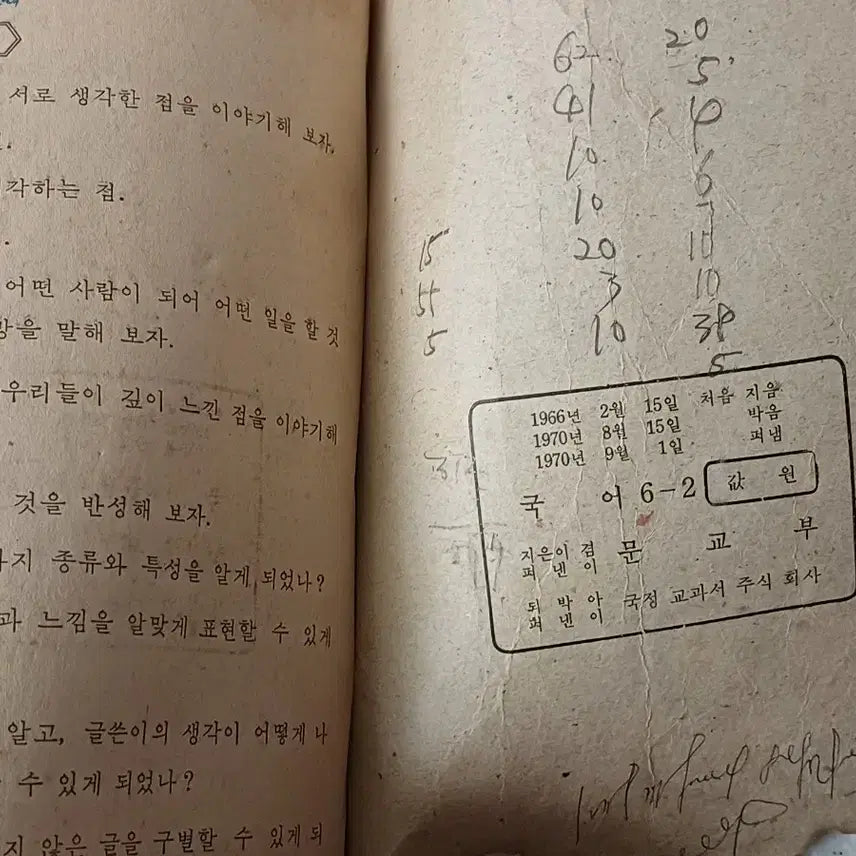 서로 생각한 점을 이야기해 보자.
각하는 점.
어떤 사람이 되어 어떤 일을 할 것
을 말해 보자.
우리들이 깊이 느낀 점을 이야기해
것을 반성해 보자.
지 종류와 특성을 알게 되었나?
과 느낌을 알맞게 표현할 수 있게
알고, 글쓴이의 생각이 어떻게 나
수 있게 되었나?
지 않은 글을 구별할 수 있게 되
62
41
10
10
20
3
10
20
5
4
6
11
10
38
5
15
55
5
1966년 2월 15일 처음 지음
1970년 8월 15일 박음
1970년 9월 1일 펴냄
국 어 6-2
값 원
지은이 겸
펴 낸 이
문 교 부
되 박 아
펴 낸 이
국정 교과서 주식 회사